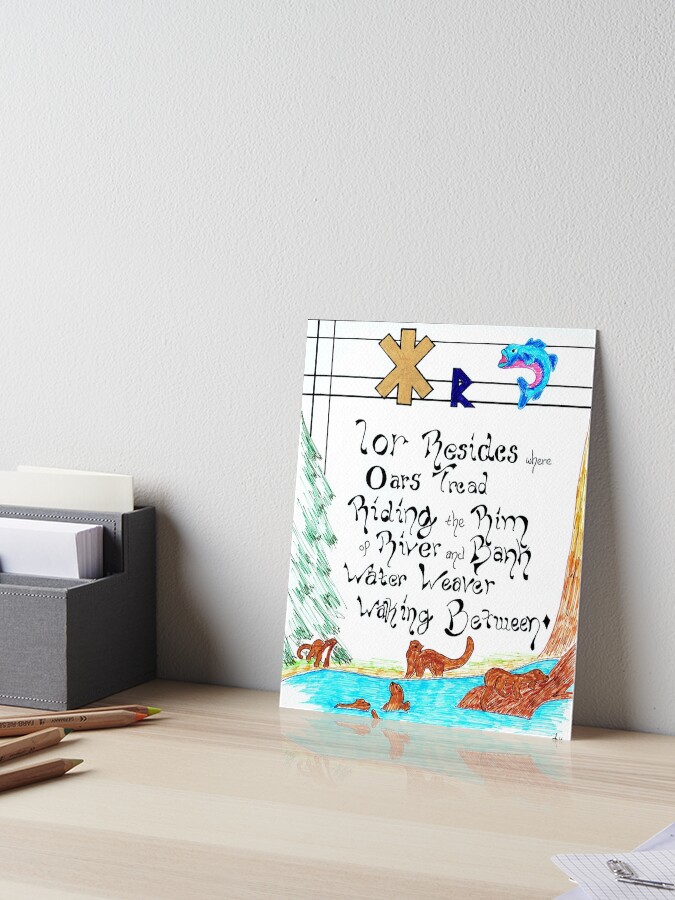 R
Ior Resides where
Oars Tread
Riding the Rim
of River and Bank
Water Weaver
Waking Between